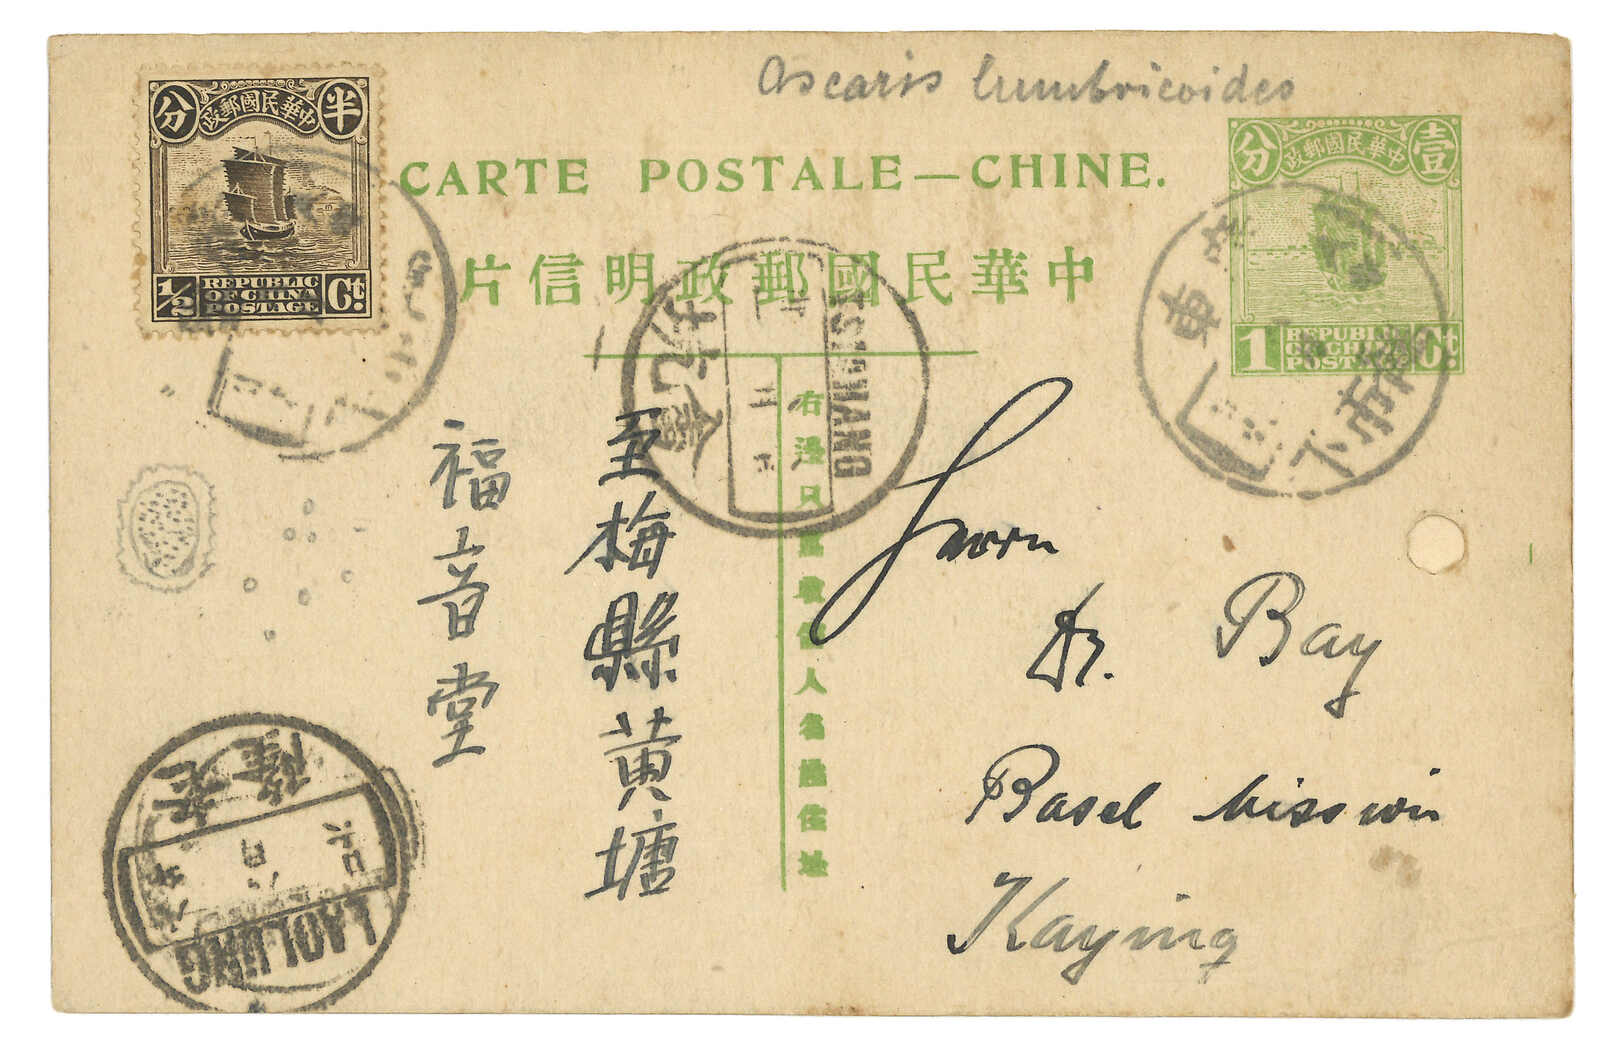 Ascaris lumbricoides
分 半
政郵國民華中
1/2 Ct.
REPUBLIC
OF CHINA
POSTAGE
CARTE POSTALE — CHINE.
片信明政郵國民華中
分 壹
政郵國民華中
1 Ct.
REPUBLIC
OF CHINA
POSTAGE
右邊只
人名
住址
至梅縣黄塘
福音堂
Herrn
Dr. Bay
Basel Mission
Kaying
廣東
下
老隆
LAOLUNG